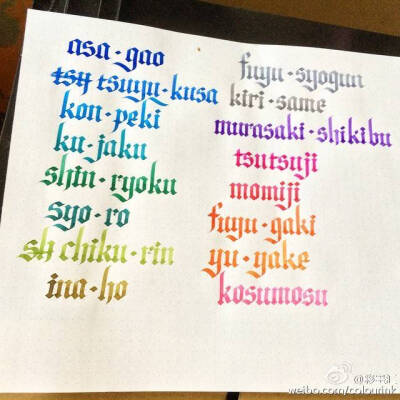 asa·gao
tsy tsuyu·kusa
kon·peki
ku·jaku
shin·ryoku
syo·ro
sh chiku·rin
ina·ho
fuyu·syogun
kiri·same
murasaki·shikibu
tsutsuji
momiji
fuyu·gaki
yu·yake
kosumosu
weibo.com/colourink